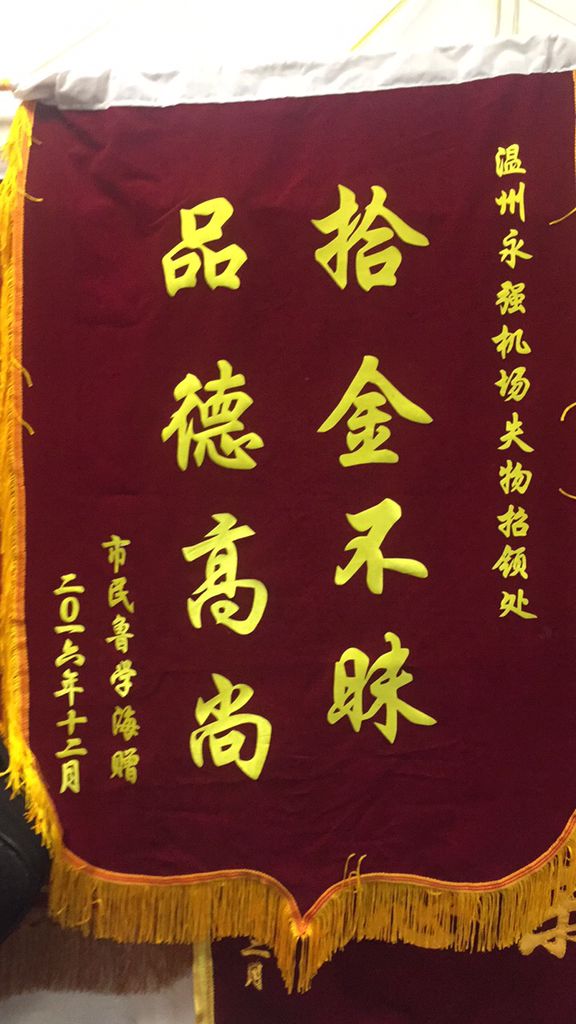 温州永强机场失物招领处
拾金不昧
品德高尚
市民鲁学海赠
二〇一六年十二月
二月